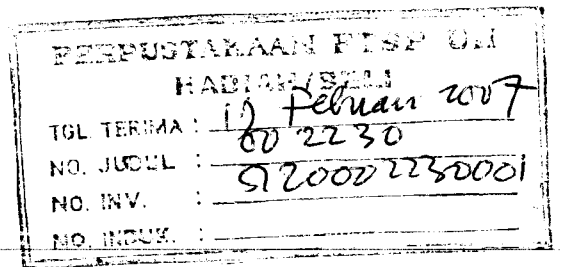 PERPUSTAKAAN FTSP UII
HADIAH/BELI
TGL. TERIMA : Februari 2007
NO. JUDUL : 002230
NO. INV. : 5120002230001
NO. INDUK. :